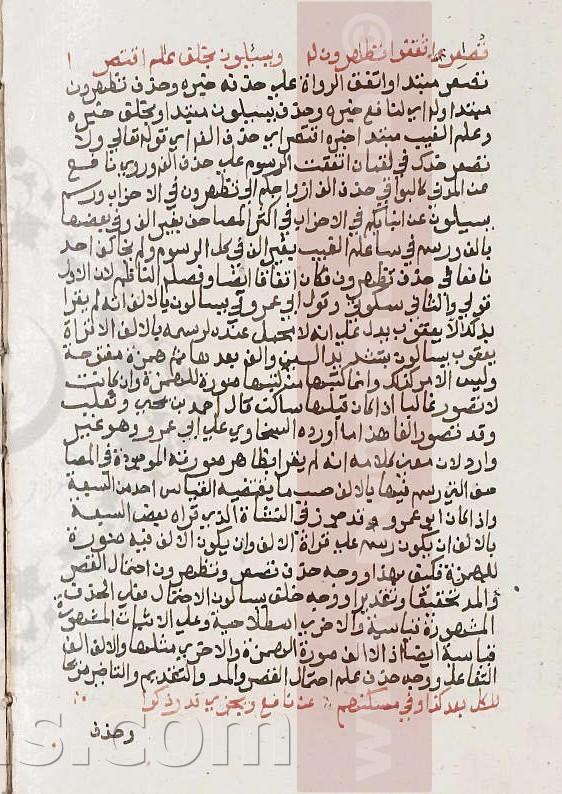 تصعر اتفقوا تظهرون له ويسئلون بخلق عالم اقتص
تصعر مبتدا واتفق الرواة على حذفه خبره وحذف تظهرون
مبتدا وله اي لنافع خبره وحذف يسيلون مبتدا وبخلف خبره
وعلم الغيب مبتدا خبره اقتص اي حذف الفه اي قوله تعالى ولا
تصعر خدك في لقمان اتفقت الرسوم على حذف الفه وروى نافع
عن المدني كالبواقي حذف الف ازواجكم الي تظهرون في الاحزاب ورسم
يسيلون عن انبايكم في الاحزاب في اكثر المصاحف بغير الف وفي بعضها
بالف ورسم في سبا علم الغيب بغير الف في كل الرسوم ولم يخالف احد
نافعا في حذف تظهرون فكان اتفاقا ايضا وفصله الناظم لان الاول
قولي والثاني سكوتي وقول ابي عمرو في يسالون بالالف انه لم يقرا
بذلك الا يعقوب يدل على انه لا محمل عنده لرسمه بالالف الا قراة
يعقوب يسالون بتشديد السين والف بعدها ثم همزة مفتوحة
وليس الامر كذلك وانما
لا تصور غالبا اذا كان قبلها ساكن قال احمد بن يحيى وثعلب
وقد تصور الفا هذا ما اورده السخاوي على ابي عمرو وهو غير
وارد لان معنى كلامه انه لم يقرا بظاهر صورته الموجودة في المصا
حف التي رسم فيها بالالف حسب ما يقتضيه القياس احد من السبعة
واذا كان ابو عمرو قد جوز في النشاة الذي قراه بعض السبعة
بالالف ان يكون رسم على قراة الالف وان يكون الالف فيه صورة
للهمزة فكيف بهذا ووجه حذف تصعر وتظهرون احتمال القصر
والمد تحقيقا وتقديرا ووجه خلف يسالون الاحتمال فعلى الحذف
المشهورة قياسية والاخرى اصطلاحية وعلى الاثبات المشهورة
قياسية ايضا اذ الالف صورة الهمزة والاخرى مثلها والالف الف
التفاعل ووجه حذف علم احتمال القصر والمد والتقديم والتاخير
للكل بعد كذا وفي مسكنهم عن نافع ويجزى قد ذكر
وحذف